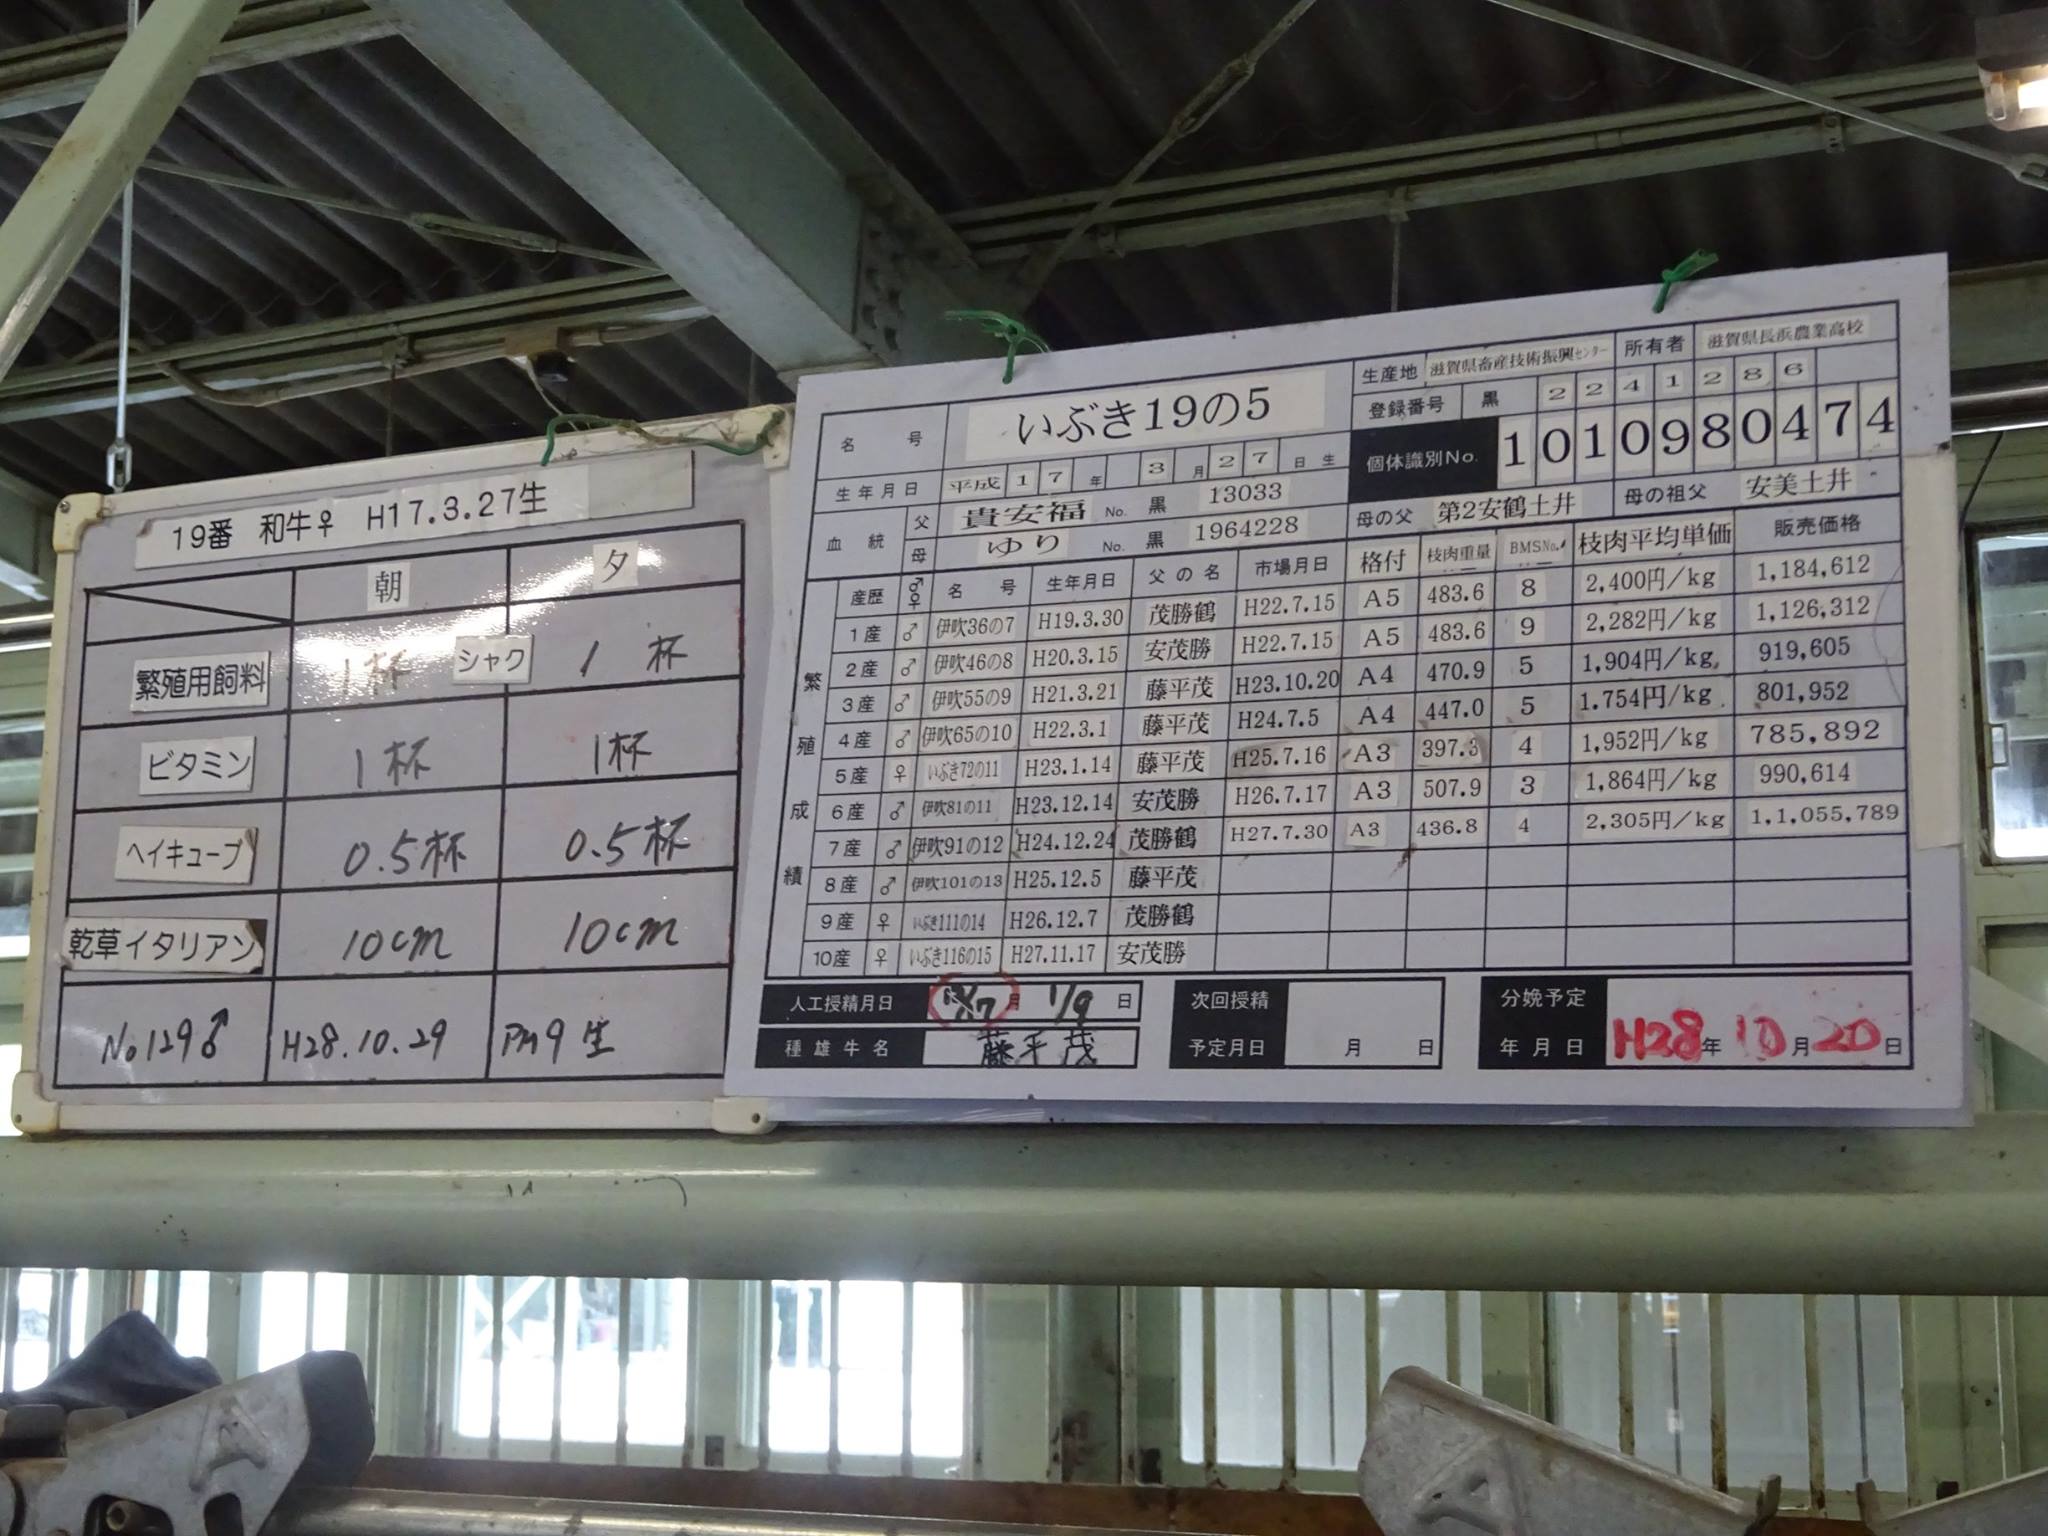 19番 和牛♀ H17.3.27生
朝 夕
繁殖用飼料 1杯 シャク 1杯
ビタミン 1杯 1杯
ヘイキューブ 0.5杯 0.5杯
乾草イタリアン 10cm 10cm
No129♂ H28.10.29 PM9生
名号 いぶき19の5
生産地 滋賀県畜産技術振興センター 所有者 滋賀県長浜農業高校
登録番号 黒 2241286
生年月日 平成17年3月27日生
個体識別No. 1010980474
血統 父 貴安福 No. 黒 13033
母 ゆり No. 黒 1964228
母の父 第2安鶴土井 母の祖父 安美土井
繁殖成績
産歴 ♂♀ 名号 生年月日 父の名 市場月日 格付 枝肉重量 BMSNo. 枝肉平均単価 販売価格
1産 ♂ 伊吹36の7 H19.3.30 茂勝鶴 H22.7.15 A5 483.6 8 2,400円/kg 1,184,612
2産 ♂ 伊吹46の8 H20.3.15 安茂勝 H22.7.15 A5 483.6 9 2,282円/kg 1,126,312
3産 ♂ 伊吹55の9 H21.3.21 藤平茂 H23.10.20 A4 470.9 5 1,904円/kg 919,605
4産 ♂ 伊吹65の10 H22.3.1 藤平茂 H24.7.5 A4 447.0 5 1.754円/kg 801,952
5産 ♀ いぶき72の11 H23.1.14 藤平茂 H25.7.16 A3 397.3 4 1,952円/kg 785,892
6産 ♂ 伊吹81の11 H23.12.14 安茂勝 H26.7.17 A3 507.9 3 1,864円/kg 990,614
7産 ♂ 伊吹91の12 H24.12.24 茂勝鶴 H27.7.30 A3 436.8 4 2,305円/kg 1,1,055,789
8産 ♂ 伊吹101の13 H25.12.5 藤平茂
9産 ♀ いぶき111の14 H26.12.7 茂勝鶴
10産 ♀ いぶき116の15 H27.11.17 安茂勝
人工授精月日 月 1/9 日
種雄牛名 藤平茂
次回授精予定月日 月 日
分娩予定年月日 H28年10月20日